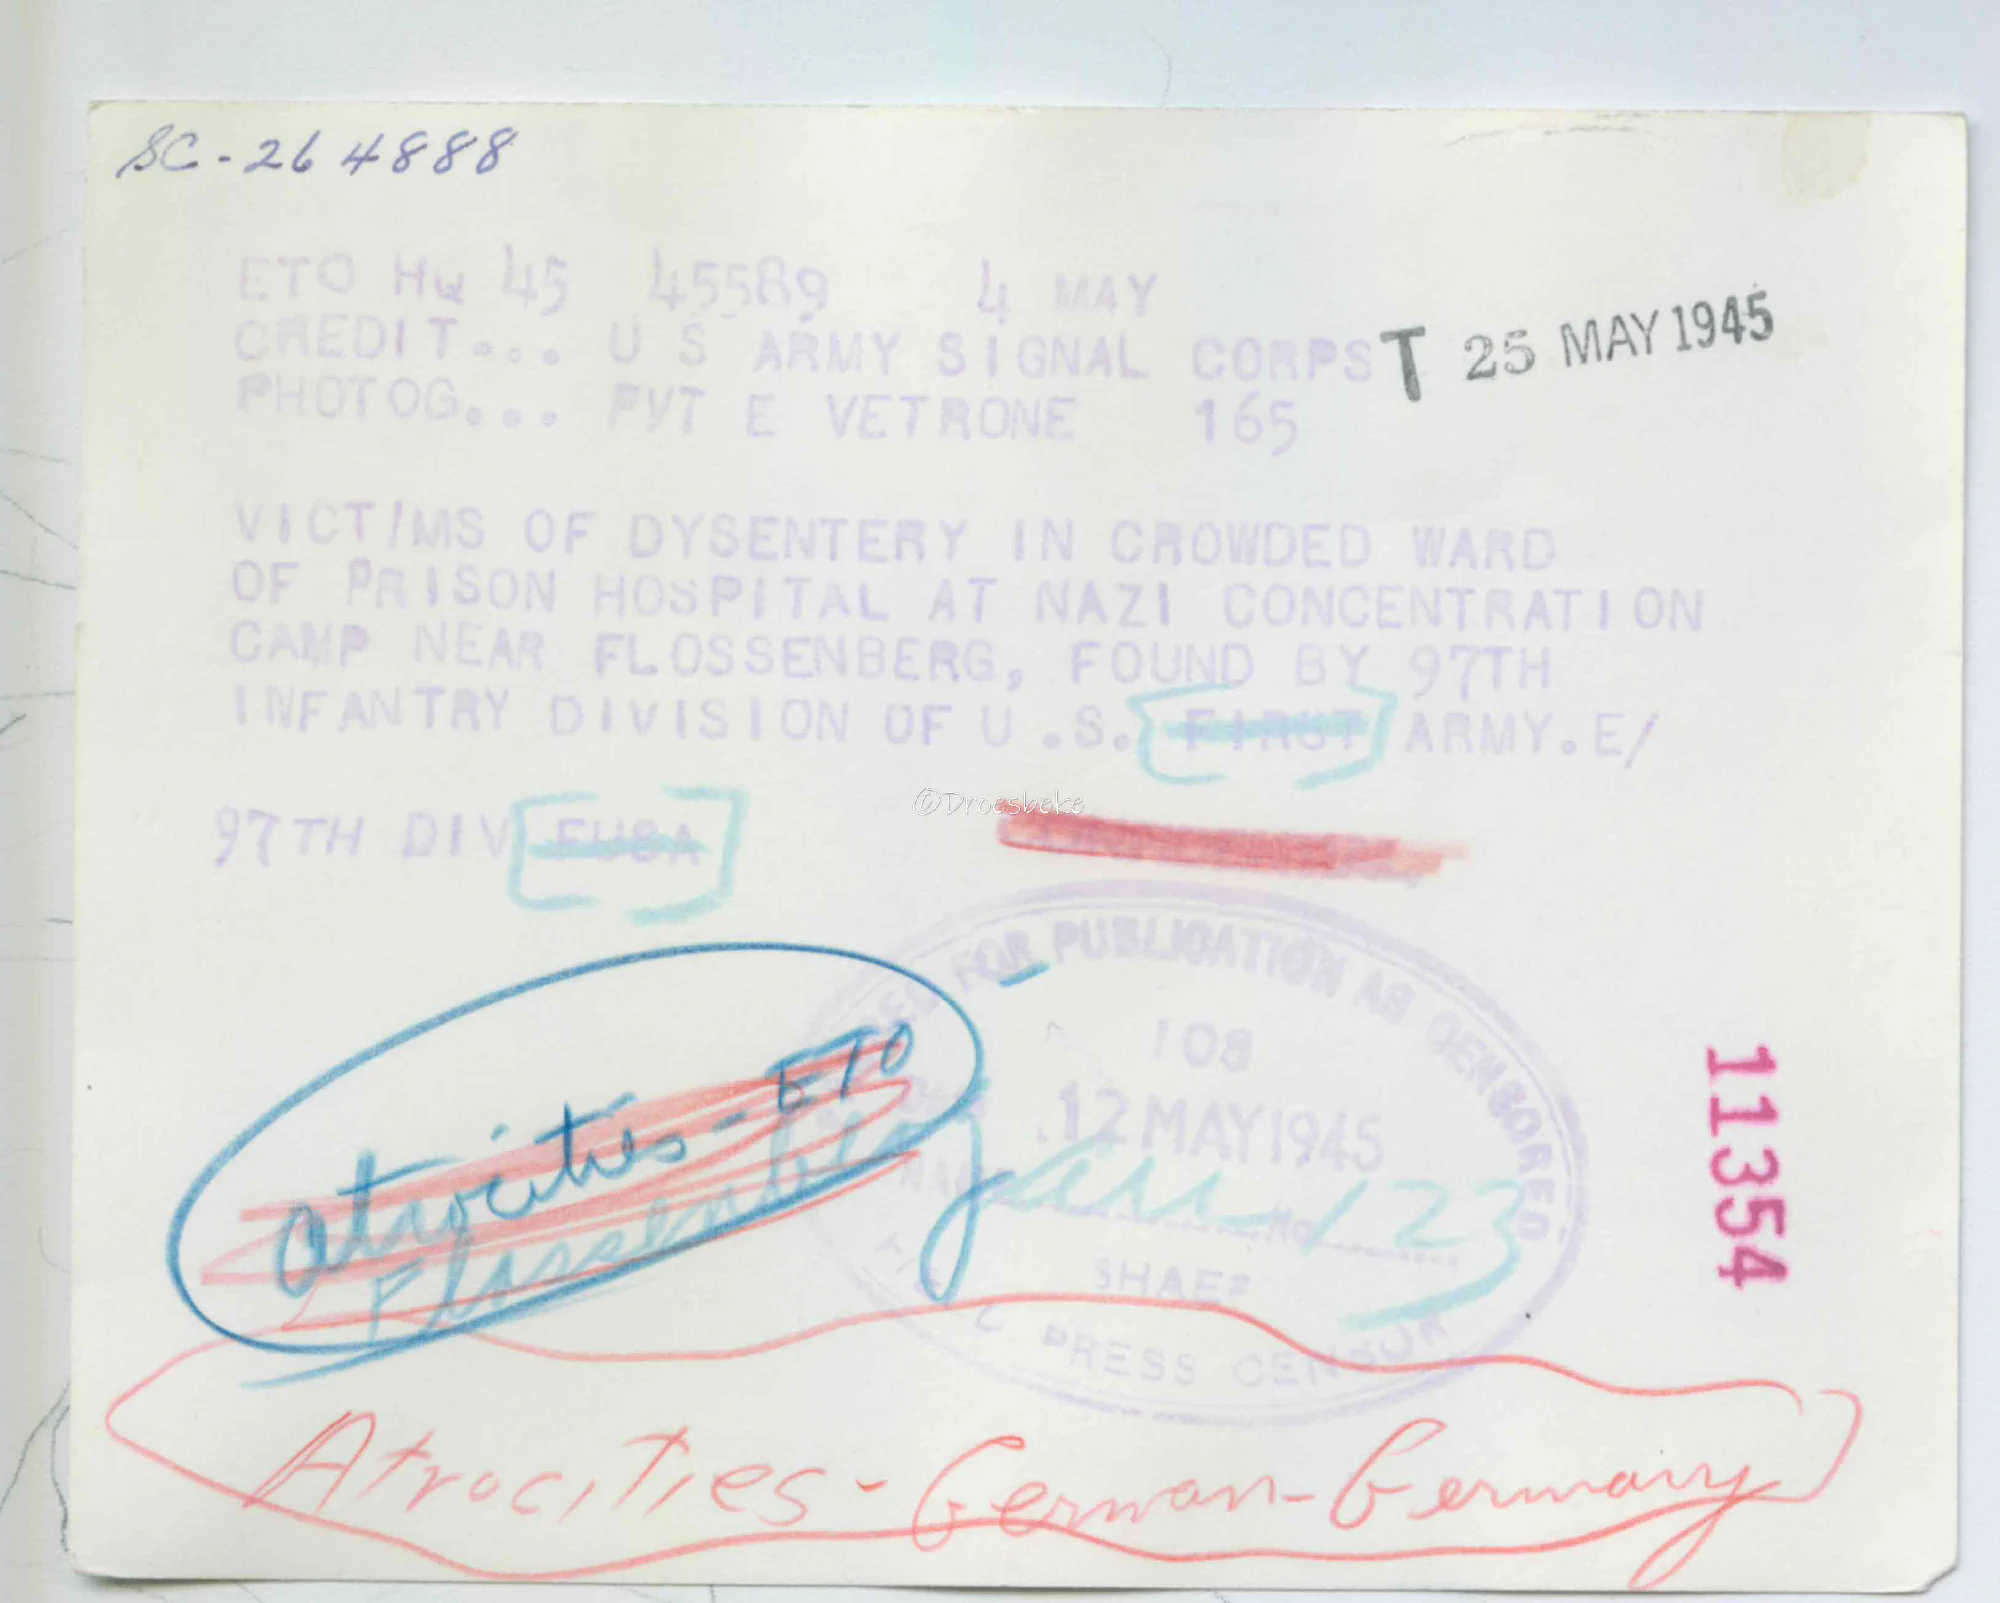 SC-264888
ETO HQ 45 45589 4 MAY
CREDIT... U S ARMY SIGNAL CORPS
T 25 MAY 1945
PHOTOG... PVT E VETRONE 165
VICTIMS OF DYSENTERY IN CROWDED WARD
OF PRISON HOSPITAL AT NAZI CONCENTRATION
CAMP NEAR FLOSSENBERG, FOUND BY 97TH
INFANTRY DIVISION OF U.S. FIRST ARMY.E/
97TH DIV FUSA
©Droesbeke
FOR PUBLICATION AS CENSORED
108
12 MAY 1945
SHAEF
PRESS CENSOR
Atrocities - ETO
Flossenburg
123
11354
Atrocities - German - Germany